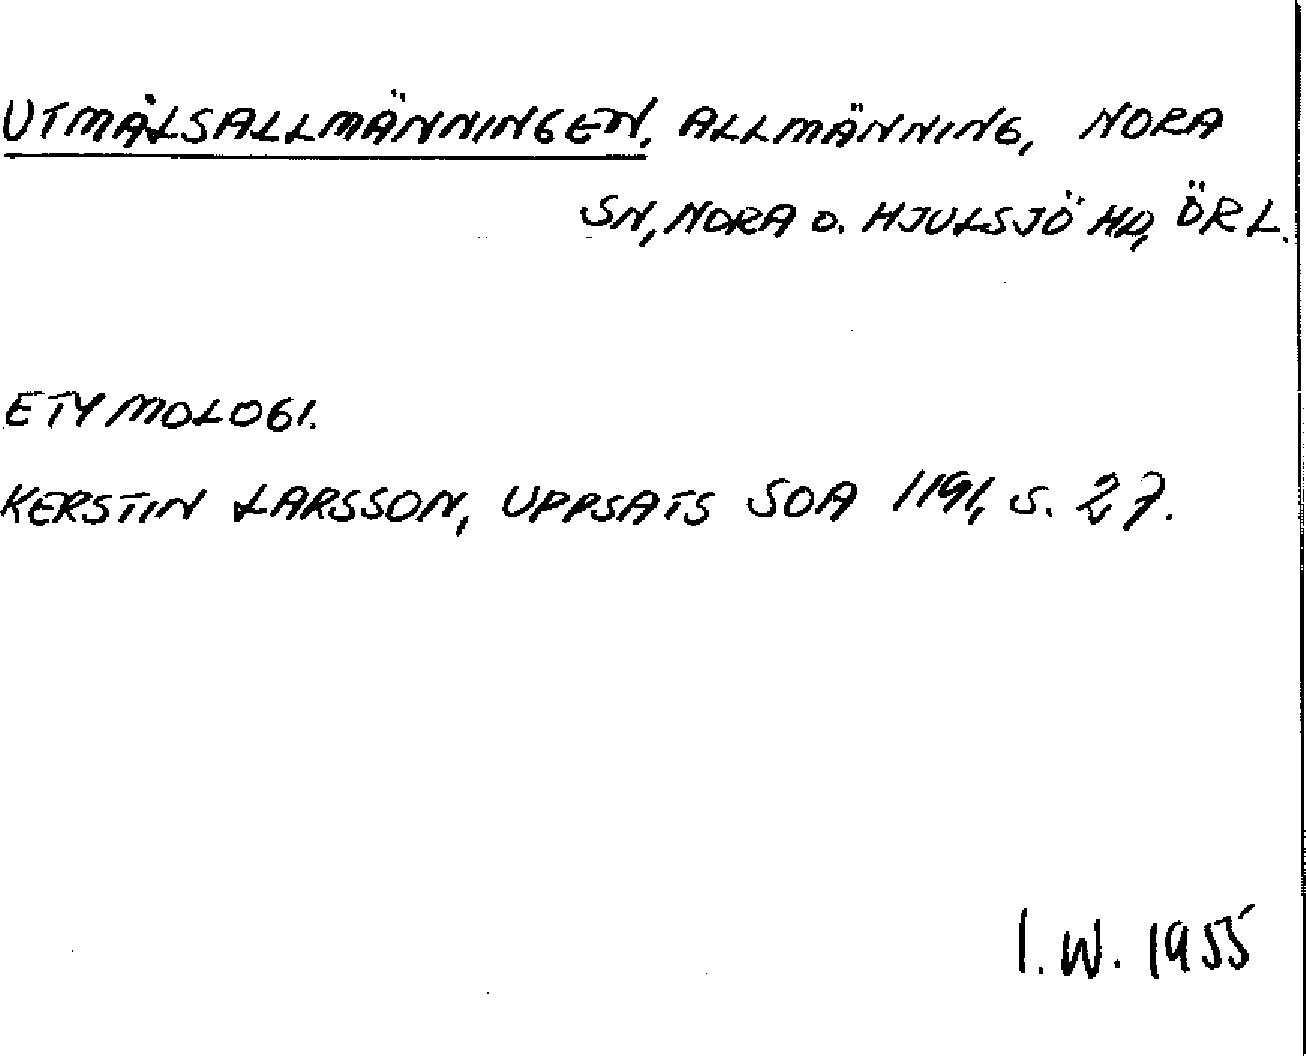 UTMÅLSALLMÄNNINGEN, ALLMÄNNING, NORA
SN, NORA O. HJULSJÖ HD, ÖRL.
ETYMOLOGI.
KERSTIN LARSSON, UPPSATS SOA 1191, S. 27.
I.W. 1955